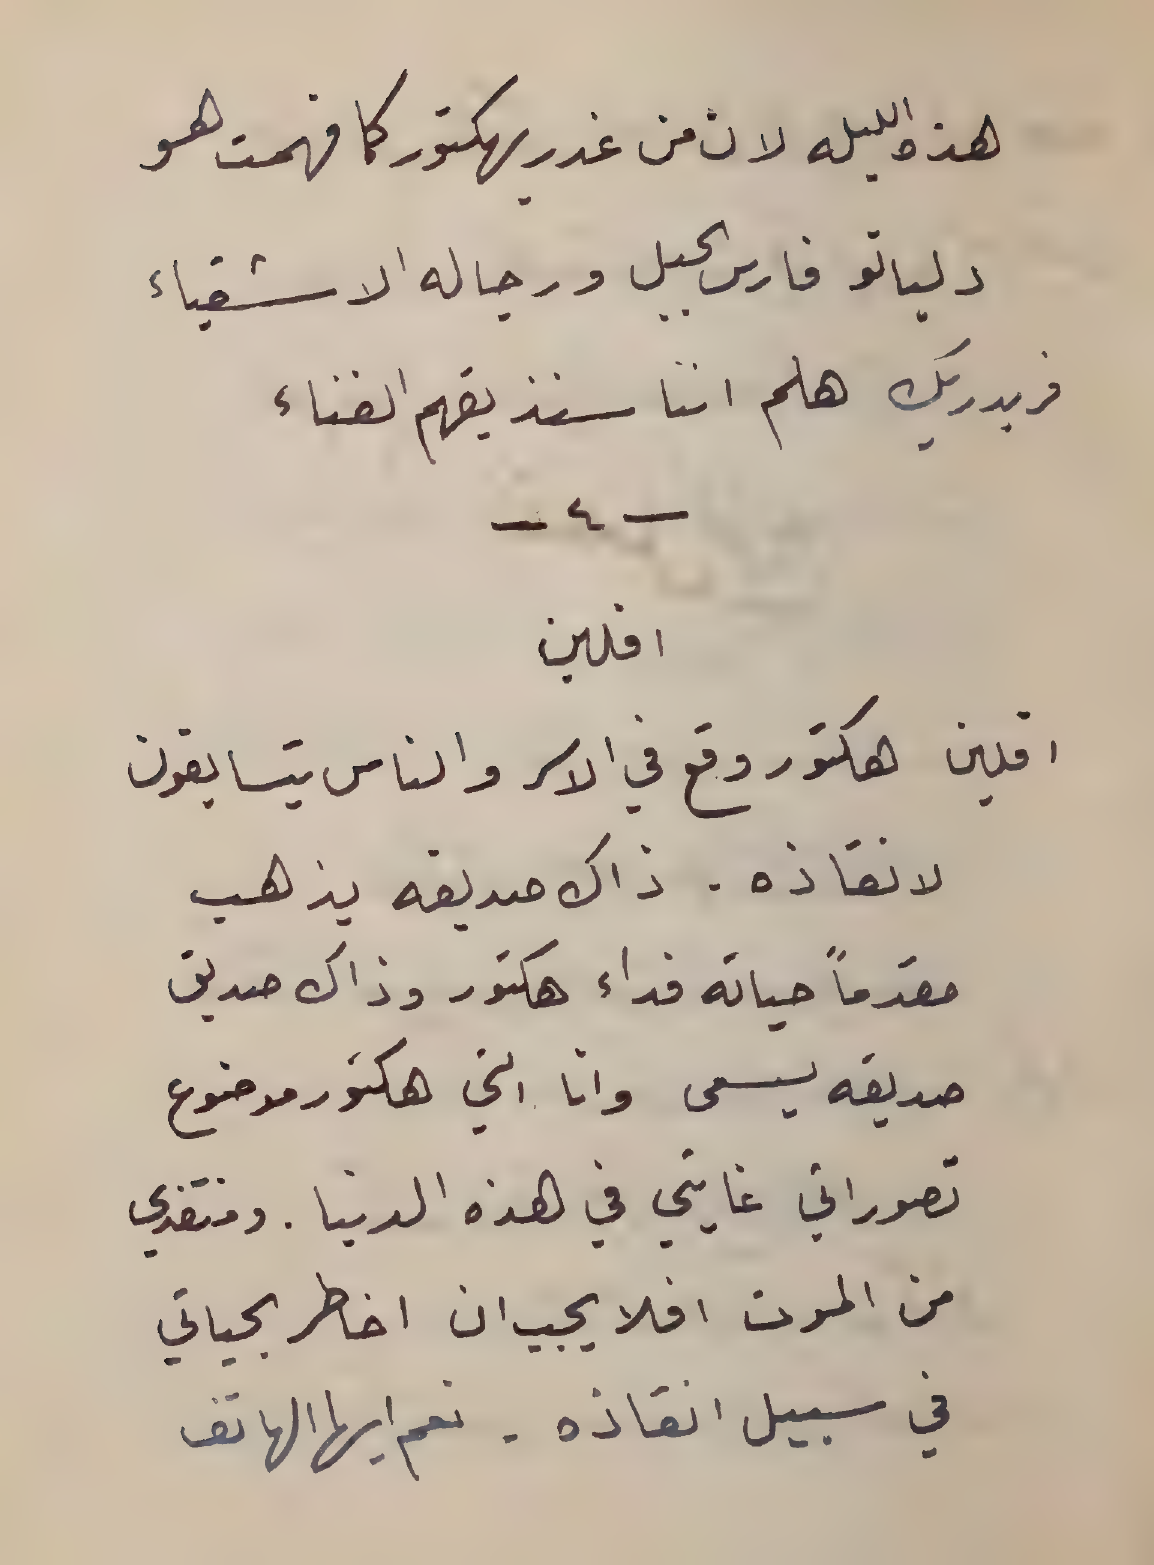 هذه الليله لان من غدر بهكتور كما فهمت هو
دلياتو فارس الجبل ورجاله الاشقياء
فريدريك هلم اننا سنذيقهم الفناء
- ٤ -
افلين
افلين هكتور وقع في الاسر والناس يتسابقون
لانقاذه . ذاك صديقه يذهب
مقدماً حياته فداء هكتور وذاك صديق
صديقه يسعى وانا التي هكتور موضوع
تصوراتي غايتي في هذه الدنيا . ومنقذي
من الموت افلا يجب ان اخاطر بحياتي
في سبيل انقاذه . نعم ايها الهاتف